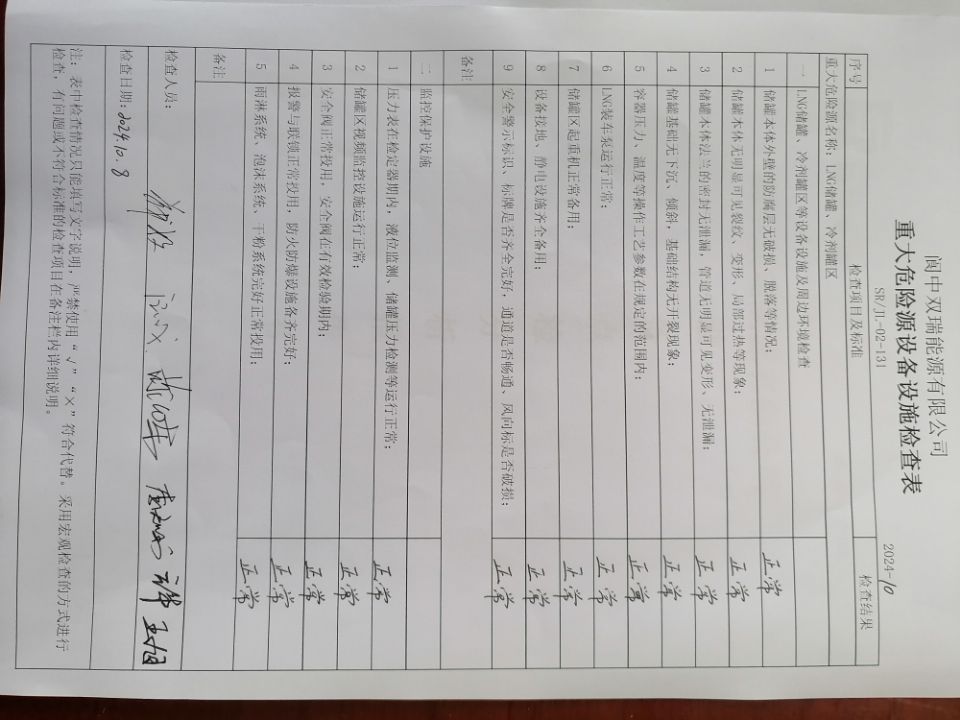 阆中双瑞能源有限公司
重大危险源设备设施检查表
SR/JL-02-131
2024-10
序号 检查项目及标准 检查结果
重大危险源名称：LNG储罐、冷剂罐区
一 LNG储罐、冷剂罐区等设备设施及周边环境检查
1 储罐本体外壁的防腐层无破损、脱落等情况； 正常
2 储罐本体无明显可见裂纹、变形、局部过热等现象； 正常
3 储罐本体法兰的密封无泄漏，管道无明显可见变形、无泄漏； 正常
4 储罐基础无下沉、倾斜，基础结构无开裂现象； 正常
5 容器压力、温度等操作工艺参数在规定的范围内； 正常
6 LNG装车泵运行正常； 正常
7 储罐区起重机正常备用； 正常
8 设备接地、静电设施齐全备用； 正常
9 安全警示标识、标牌是否齐全完好，通道是否畅通、风向标是否破损； 正常
备注
二 监控保护设施
1 压力表在检定器期内，液位监测、储罐压力检测等运行正常； 正常
2 储罐区视频监控设施运行正常； 正常
3 安全阀正常投用，安全阀在有效检验期内； 正常
4 报警与联锁正常投用，防火防爆设施备齐完好； 正常
5 雨淋系统、泡沫系统、干粉系统完好正常投用； 正常
备注
检查人员：
检查日期：2024.10.8
注：表中检查情况只能填写文字说明，严禁使用“√”“×”符合代替。采用宏观检查的方式进行
检查，有问题或不符合标准的检查项目在备注栏内详细说明。